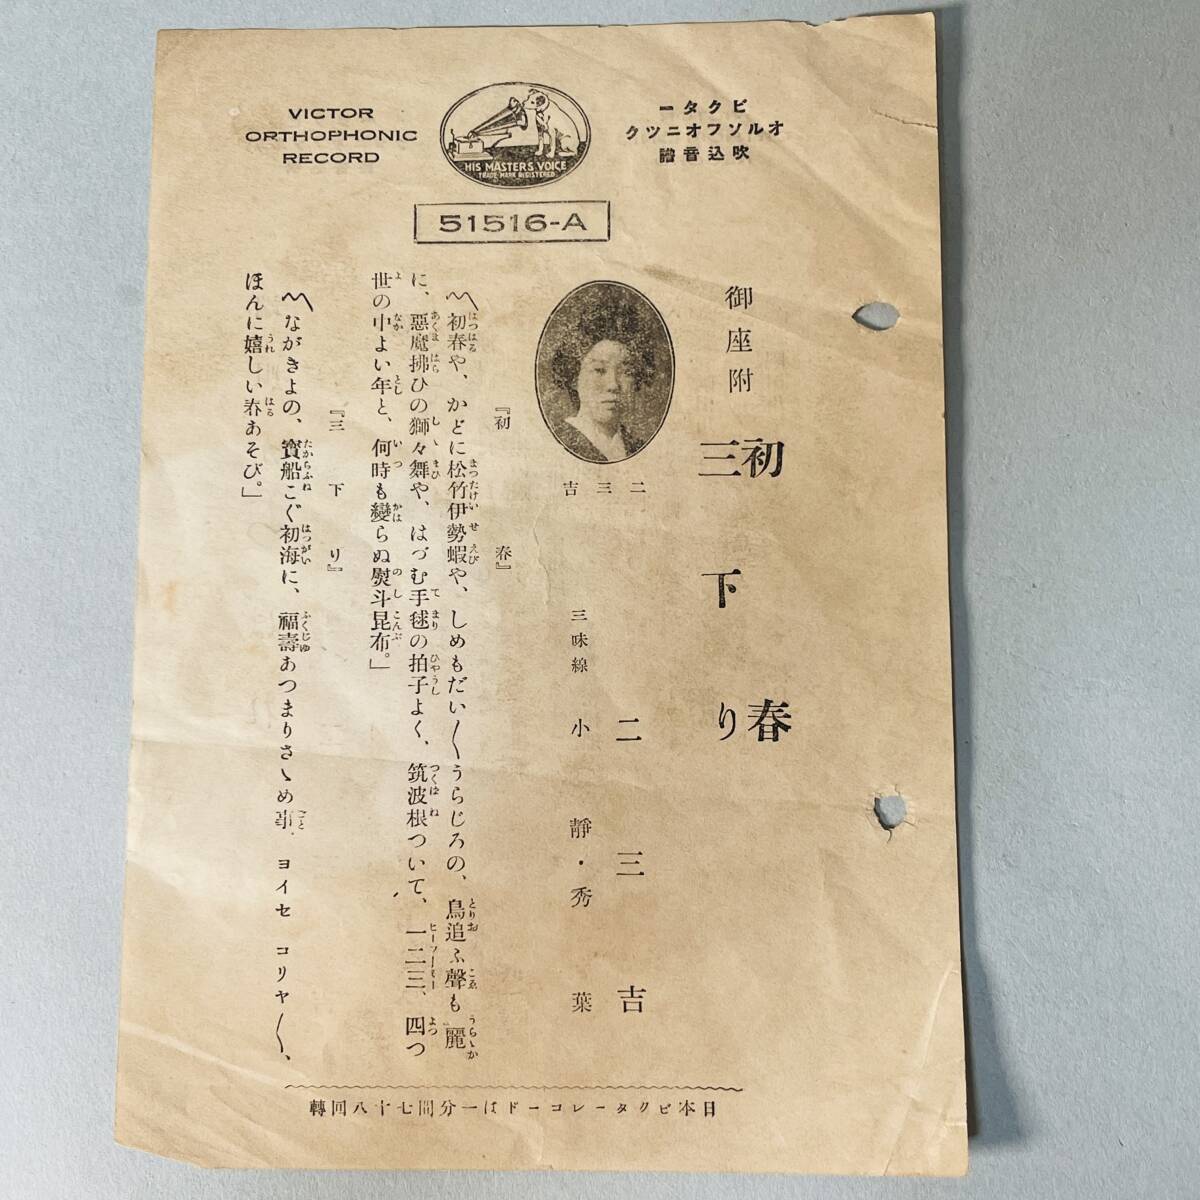 VICTOR
ORTHOPHONIC
RECORD
HIS MASTER'S VOICE
TRADE MARK REGISTERED
ビクター
オルソフオニツク
吹込音譜
51516-A
御座附
初春
三下り
二三吉
三味線 小靜・秀葉
二三吉
『初春』
〽初春や、かどに松竹伊勢蝦や、しめもだい〳〵うらじろの、鳥追ふ聲も麗
に、惡魔拂ひの獅々舞や、はづむ手毬の拍子よく、筑波根ついて、一二三、四つ
世の中よい年と、何時も變らぬ熨斗昆布。」
『三下り』
〽ながきよの、寶船こぐ初海に、福壽あつまりさゝめ事、ヨイセコリヤ〳〵、
ほんに嬉しい春あそび。」
日本ビクターレコードは一分間七十八回轉